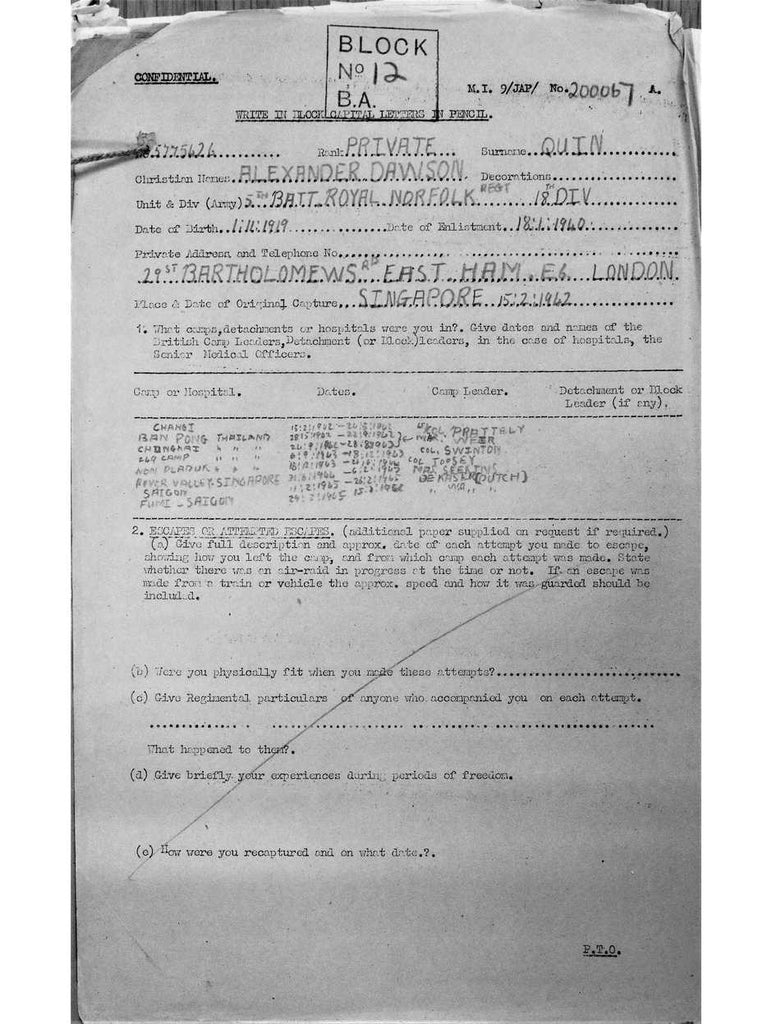 BLOCK
No 12
B.A.
CONFIDENTIAL.
M.I. 9/JAP/ No. 200067 A.
WRITE IN BLOCK CAPITAL LETTERS IN PENCIL.
No. 5775626 Rank PRIVATE Surname QUIN
Christian Names ALEXANDER DAWSON Decorations
Unit & Div (Army) 5TH BATT ROYAL NORFOLK REGT 18TH DIV
Date of Birth 1:11:1919 Date of Enlistment 18:1:1940
Private Address and Telephone No.
29 ST BARTHOLOMEWS RD EAST HAM E6 LONDON
Place & Date of Original Capture, SINGAPORE 15:2:1942
1. What camps,detachments or hospitals were you in?. Give dates and names of the
British Camp Leaders,Detachment (or Block)leaders, in the case of hospitals, the
Senior Medical Officers.
Camp or Hospital. Dates. Camp Leader. Detachment or Block
Leader (if any).
CHANGI
BAN PONG THAILAND WEIR
CHUNGKAI " " " COL SWINTON
CAMP " " "
NON PLADUK " " "
RIVER VALLEY SINGAPORE (DUTCH)
SAIGON
SAIGON
2. ESCAPES OR ATTEMPTED ESCAPES. (additional paper supplied on request if required.)
(a) Give full description and approx. date of each attempt you made to escape,
showing how you left the camp, and from which camp each attempt was made. State
whether there was an air-raid in progress at the time or not. If an escape was
made from a train or vehicle the approx. speed and how it was guarded should be
included.
(b) Were you physically fit when you made these attempts?
(c) Give Regimental particulars of anyone who accompanied you on each attempt.
What happened to them?.
(d) Give briefly your experiences during periods of freedom.
(e) How were you recaptured and on what date.?.
P.T.O.